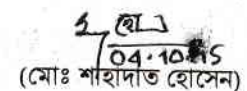 04.10.15
(মোঃ শাহাদাত হোসেন)